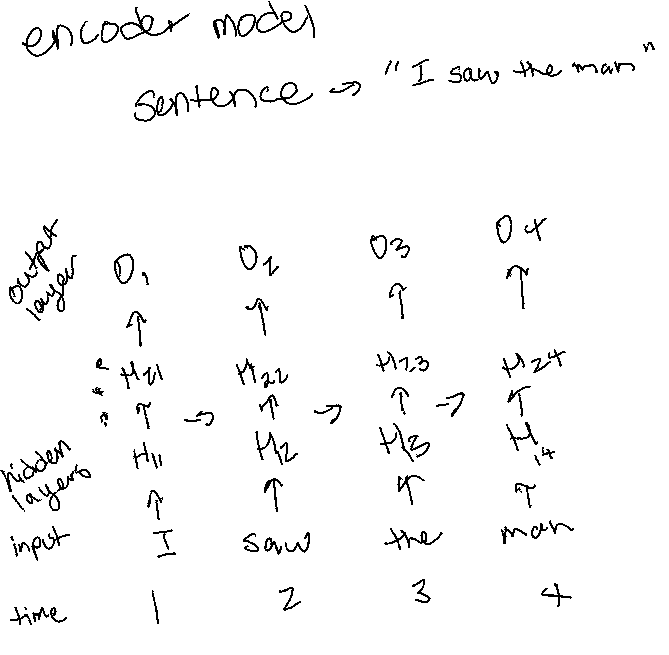 encoder model
sentence → "I saw the man"
output layer O1 O2 O3 O4
H21 H22 H23 H24
hidden layers H11 H12 H13 H14
input I saw the man
time 1 2 3 4